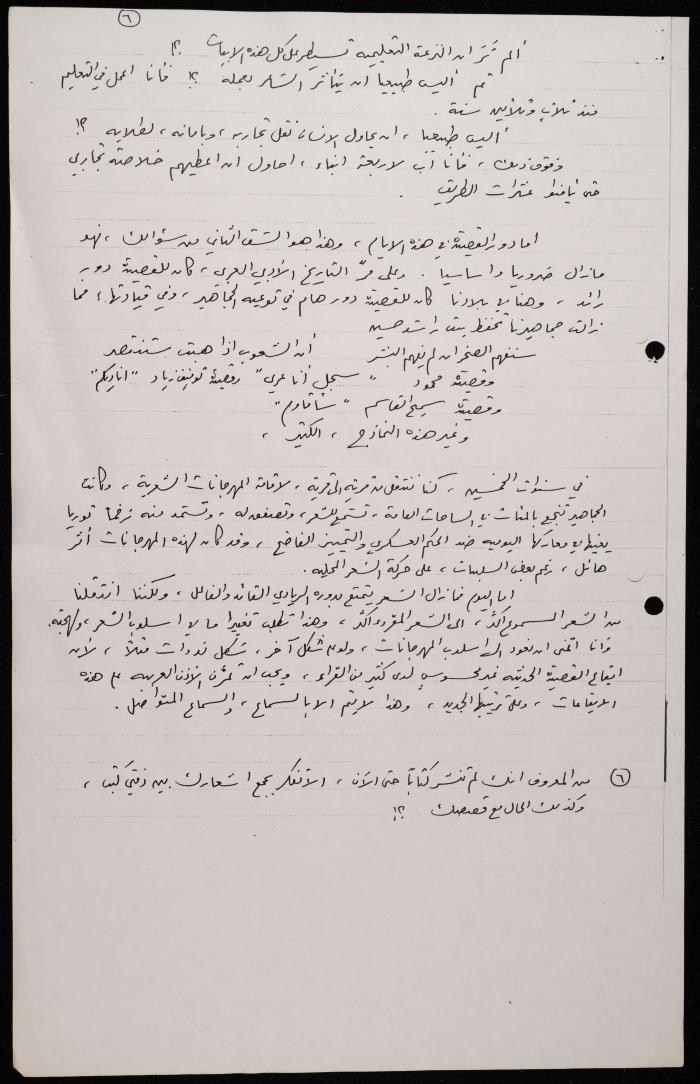 ٦
ألم تَرَ ان النزعة التعليمية تسيطر على كل هذه الابيات ؟!
ثم أليس طبيعيا ان يتأثر الشاعر بعمله ؟! فأنا اعمل في التعليم
منذ ثلاث وثلاثين سنة .
أليس طبيعيا ، ان يحاول الانسان نقل تجاربه ، وبأمانه ، لطلابه ؟!
وفوق ذلك ، فأنا أب لاربعة ابناء ، احاول ان اعطيهم خلاصة تجاربي
حتى يتلافوا عثرات الطريق .
اما دور القصيدة في هذه الايام ، وهذا هو الشق الثاني من سؤالك ، فهو
ما زال ضروريا واساسيا . وعلى مرّ التاريخ الأدبي العربي ، كان للقصيدة دور
رائد ، وهنا في بلادنا كان للقصيدة دور هام في توعية الجماهير ، وفي قيادتها ، فما
زالت جماهيرنا تحفظ بيت راشد حسين
سنفهم الصخر ان لم يفهم البشر أن الشعوب اذا هبت ستنتصر
وقصيدة محمود " سجل أنا عربي " وقصيدة توفيق زياد " اناديكم "
وقصيدة سميح القاسم " سأقاوم "
وغير هذه النماذج ، الكثير ،
في سنوات الخمسين ، كنا ننتقل من قرية الى قرية ، لاقامة المهرجانات الشعرية ، وكانت
الجماهير تتجمع بالمئات في الساحات العامة ، تستمع للشعر ، وتصفق له ، وتستمد منه زخما ثوريا
يعينها في معاركها اليومية ضد الحكم العسكري والتمييز الفاضح ، وقد كان لهذه المهرجانات أثر
هائل ، رغم بعض السلبيات ، على حركة الشعر المحلية .
اما اليوم فما زال الشعر يتمتع بدوره الريادي القائد والفاعل ، ولكننا انتقلنا
من الشعر المسموع اكثر ، الى الشعر المقروء اكثر ، وهذا تطلب تغييرا ما في اسلوب الشعر ، ولهجته .
وأنا اتمنى ان نعود الى اسلوب المهرجانات ، ولو بشكل آخر ، بشكل ندوات مثلاً ، لأن
ايقاع القصيدة الحديثة غير محسوس لدى كثير من القراء ، ويجب ان تمرّن الأذن العربية على هذه
الايقاعات ، وعلى ترتيبها الجديد ، وهذا لا يتم الا بالسماع ، والسماع المتواصل .
٦ من المعروف انك لم تنشر كتاباً حتى الآن ، ألا تفكر بجمع اشعارك بين دفتي كتب ،
وكذلك الحال مع قصصك ؟!